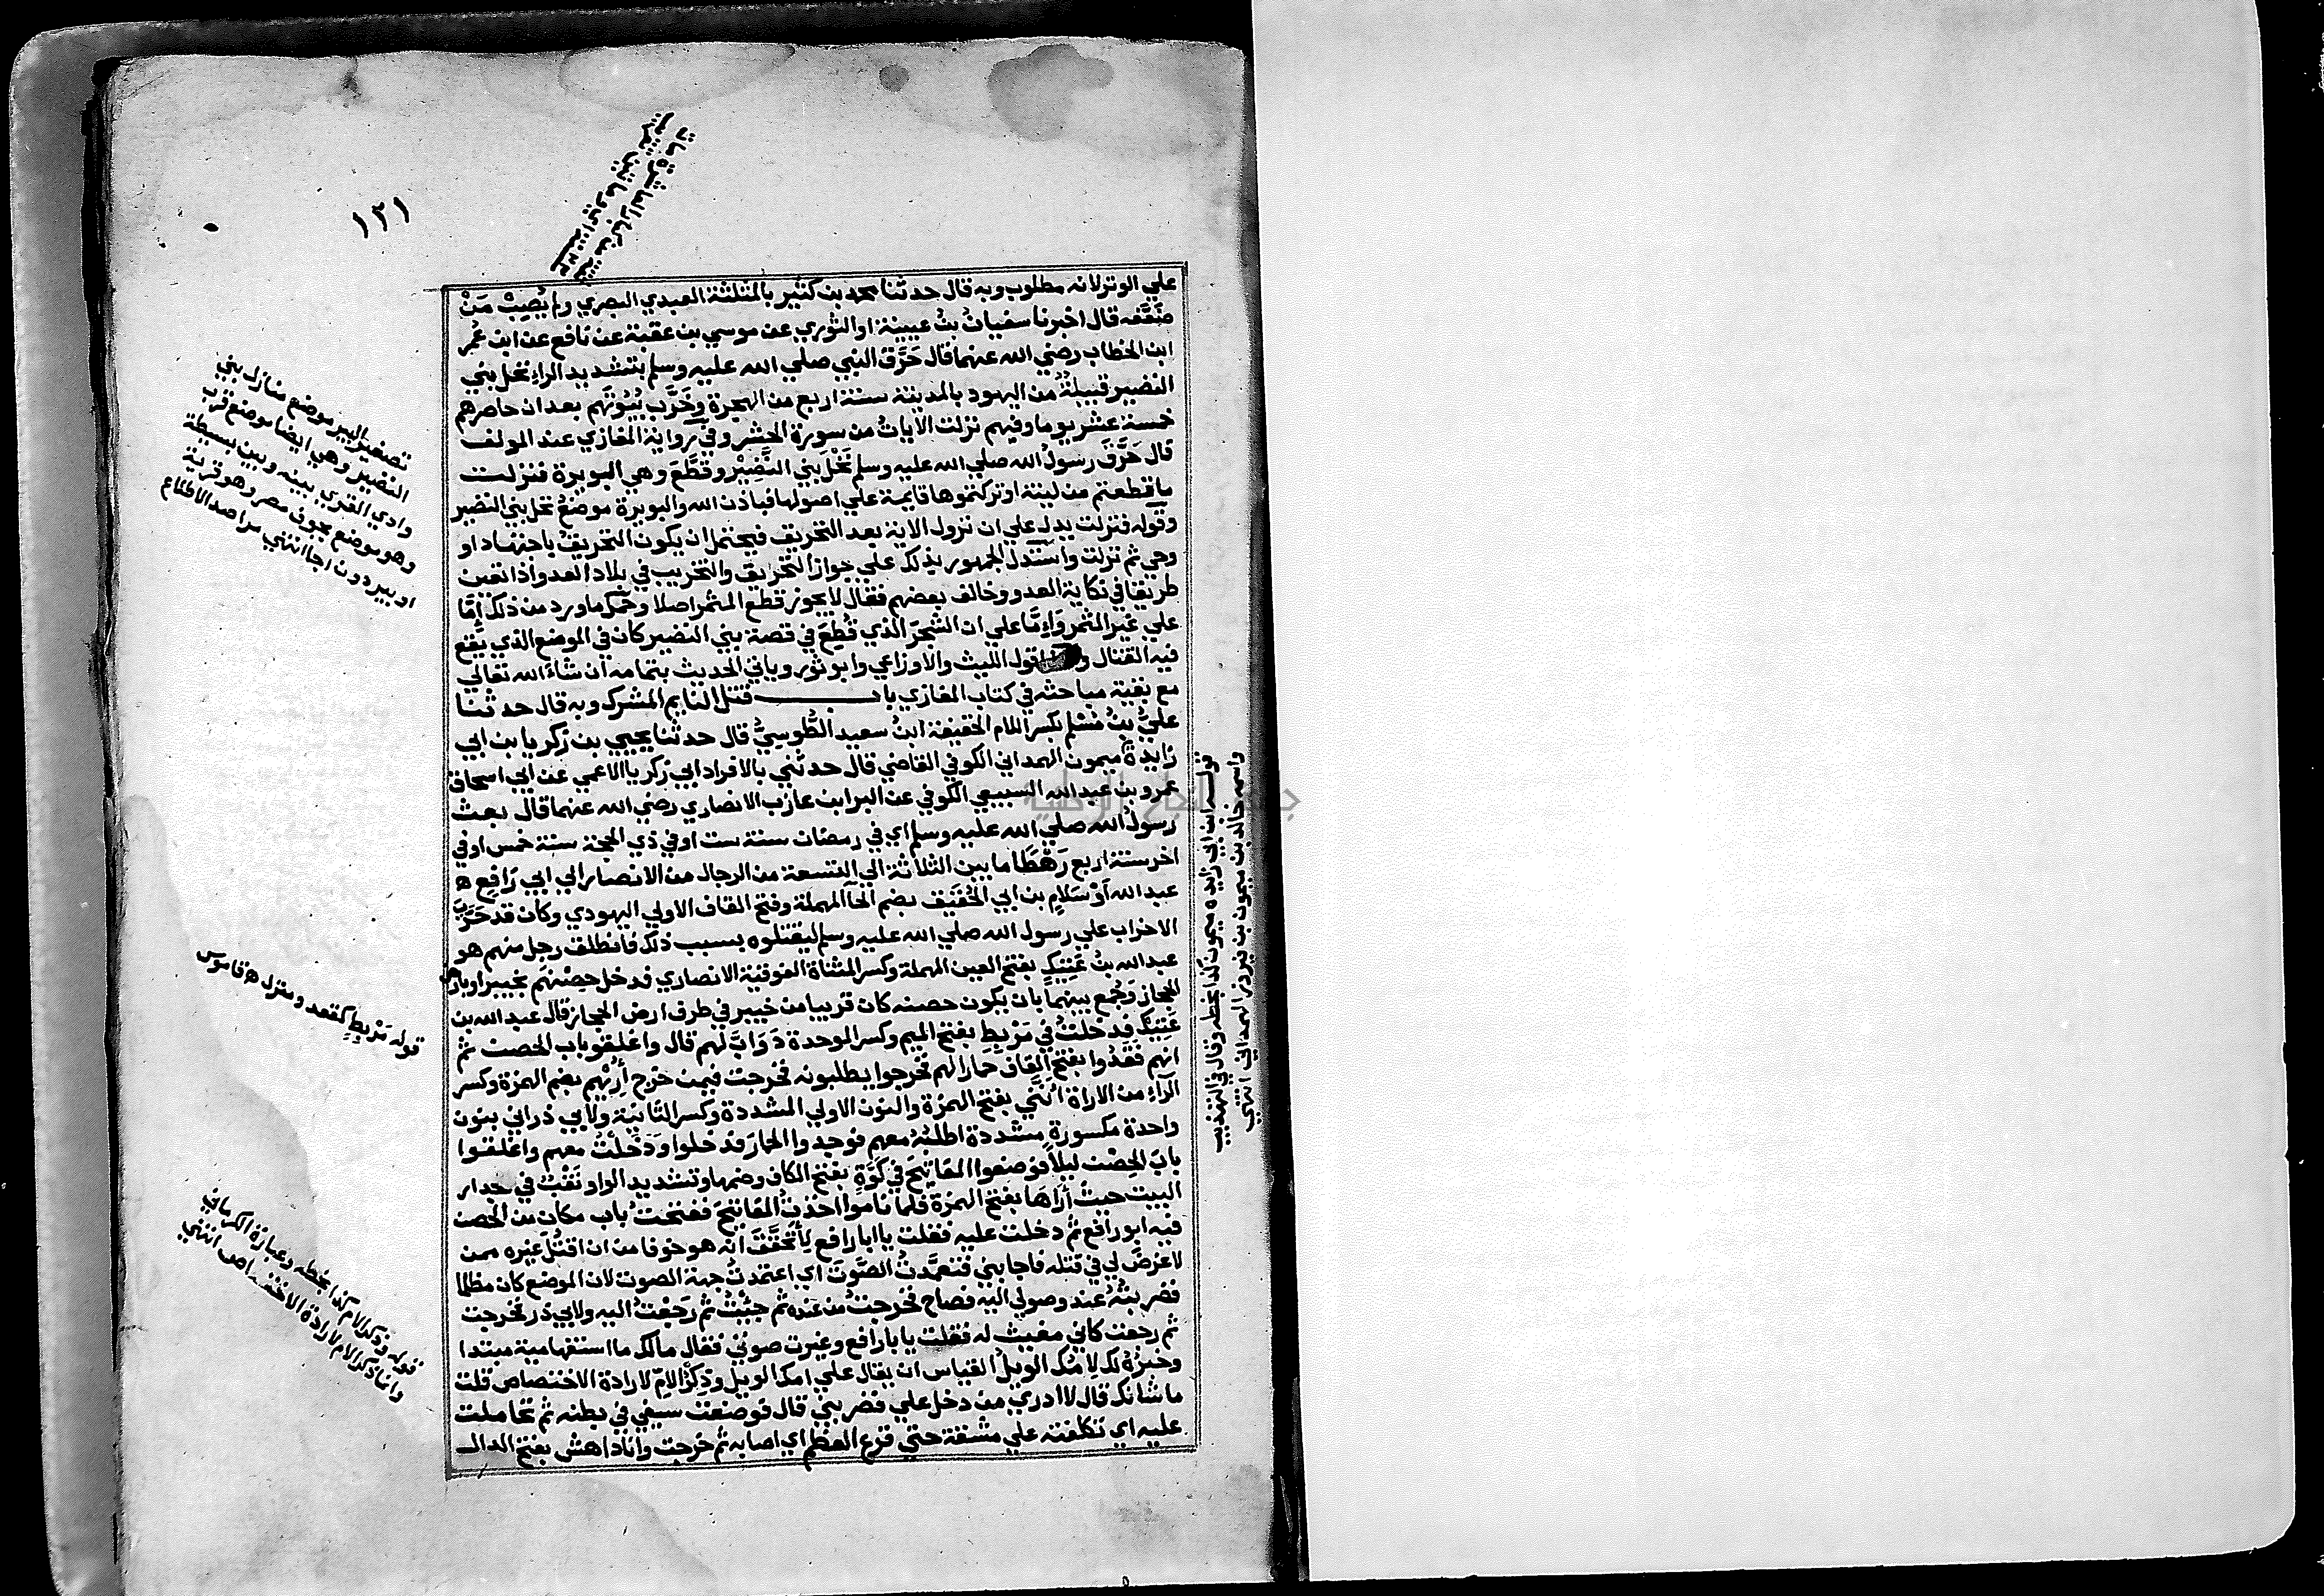 ١٢١
علي الوتر لانه مطلوب وبه قال حدثنا محمد بن كثير بالمثلثة العبدي البصري ولم يُصِبْ مَنْ
ضَعَّفه قال اخبرنا سفيانُ بنُ عيينة او الثوري عن موسي بن عقبة عن نافع عن ابن عُمر
ابن الخطاب رضي الله عنهما قال حَرَّق النبي صلي الله عليه وسلم بتشديد الراء نخل بني
النضير قبيلةٌ من اليهود بالمدينة سنة اربع من الهجرة وخَرَّب بُيُوتَهم بعد ان حاصرهم
خمسة عشر يوما وفيهم نزلت الاياتُ من سورة الحشر وفي رواية المغازي عند المولف
قال حَرَّقَ رسولُ الله صلي الله عليه وسلم نَخْلَ بَنِي النَّضِيْر وقَطَّعَ وهي البويرة فنزلت
ما قطعتم من لينة او تركتموها قايمة علي اصولها فباذن الله والبويرة موضعُ نخل بني النضير
وقوله فنزلت يدل علي ان نزول الاية بعد التحريق فيحتمل ان يكون التحريقُ باجتهاد او
وحي ثم نزلت واستدل الجمهور بذلك علي جواز التحريق والتخريب في بلاد العدو اذا تعين
طريقا في نكاية العدو وخالف بعضهم فقال لا يجوز قطع المثمر اصلا وحَمَل ما ورد من ذلك اِمَّا
علي غير المثمر وَاِمَّا علي ان الشجرَ الذي قُطِعَ في قصة بني النضير كان في الموضع الذي يقع
فيه القتال و قول الليث والاوزاعي وابو ثور وياتي الحديث بتمامه ان شاءَ الله تعالي
مع بقية مباحثه في كتاب المغازي باب قتل النايم المشرك وبه قال حدثنا
عليُّ بنُ مُسْلِم بكسر اللام الخفيفة ابنُ سعيد الطُّوسِيُّ قال حدثنا يحيي بن زكريا بن ابي
زايدة ميمون الهمداني الكوفي القاضي قال حدثني بالافراد ابي زكريا الاعمي عن ابي اسحاق
عمرو بن عبد الله السبيعي الكوفي عن البرا بن عازب الانصاري رضي الله عنهما قال بعث
رسولُ الله صلي الله عليه وسلم اي في رمضان سنة ست او في ذي الحجة سنة خمس او في
اخر سنة اربع رَهْطًا ما بين الثلاثة الي التسعة من الرجال من الانصار الي ابي رَافِعٍ ه
عبد الله اَوْ سَلَّام بن ابي الحُقَيْق بضم الحا المهملة وفتح القاف الاولي اليهودي وكان قد حَزَّبَ
الاحزاب علي رسول الله صلي الله عليه وسلم ليقتلوه بسبب ذلك فانطلق رجل منهم هو
عبد الله بنُ عَتِيكٍ بفتح العين المهملة وكسر المثناة الفوقية الانصاري فدخل حِصْنَهم بخيبر او بارض
الحجاز وَجُمِعَ بينهما بان يكون حصنه كان قريبا من خيبر في طرف ارض الحجاز قال عبد الله بن
عَتِيْكٍ فدخلتُ في مَرْبِطِ بفتح الميم وكسر الموحدة دَوَابَّ لهم قال واغلقو باب الحصن ثم
انهم فَقَدُوا بفتح القاف حمارا لهم فخرجوا يطلبونه فخرجت فيمن خرج أُرِيْهم بضم الهمزة وكسر
الرآءِ من الاراة اَنَّنِي بفتح الهمزة والنون الاولي المشددة وكسر الثانية ولابي ذر اني بنون
واحدة مكسورة مشددة اطلبُهُ معهم فوجدوا الحمارَ فدخلوا وَدَخَلْتُ معهم واغلقوا
بابَ الحِصْن ليلاً فوضعوا المفاتيحَ في كُوَّةٍ بفتح الكاف وضمها وتشديد الواو نَقْبٌ في جدار
البيت حيثُ أَرَاهَا بفتح الهمزة فلما ناموا اخذتُ المفاتيحَ ففتحتُ بابَ مكان من الحصن
فيه ابو رافع ثُم دخلت عليه فقلت يا ابا رافع لِأَتَحَقَّقَ انه هو خوفا من ان اقتلَ غيره ممن
لا غرضَ لي في قتله فاجابني فتعمَّدتُ الصَّوتَ اي اعتمدتُ جهة الصوت لان الموضع كان مظلما
فضربتُهُ عند وصولي اليه فصاح فخرجتُ من عنده ثم جئتُ ثم رَجَعْتُ اليه ولابي ذر فخرجت
ثم رجعت كاني مغيث له فقلت يا ابا رافع وغيرت صوتي فقال مالك ما استفهامية مبتدا
وخبرُهُ لك لِاُمِّك الويلُ القياس ان يقال علي امك الويل وذِكْرُ اللامِ لارادة الاختصاص قلت
ما شانك قال لا ادري من دخل علي فضربني قال فوضعت سيفي في بطنه ثم تحاملت
عليه اي تكلفته علي مشقة حتي قرع العظم اي اصابه ثم خرجت وانا داهش بفتح الدال
تصغير البير موضع منازل بني
النضير وهي ايضا موضع قرب
وادي القري بينه وبين بسيطة
وهو موضع بجوف مصر وهو قرية
او بير دون اجا انتهي مراصد الاطلاع
قوله مَرْبِطِ كمقعد ومنزل ه قاموس
قوله وذكر اللام كذا بخطه وعبارة الكرماني
وانما ذكر اللام لارادة الاختصاص انتهي
قوله ابن ابي زايدة ميمون كذا بخطه وقال في التهذيب
واسمه خالد بن ميمون بن فيروز الهمداني انتهي